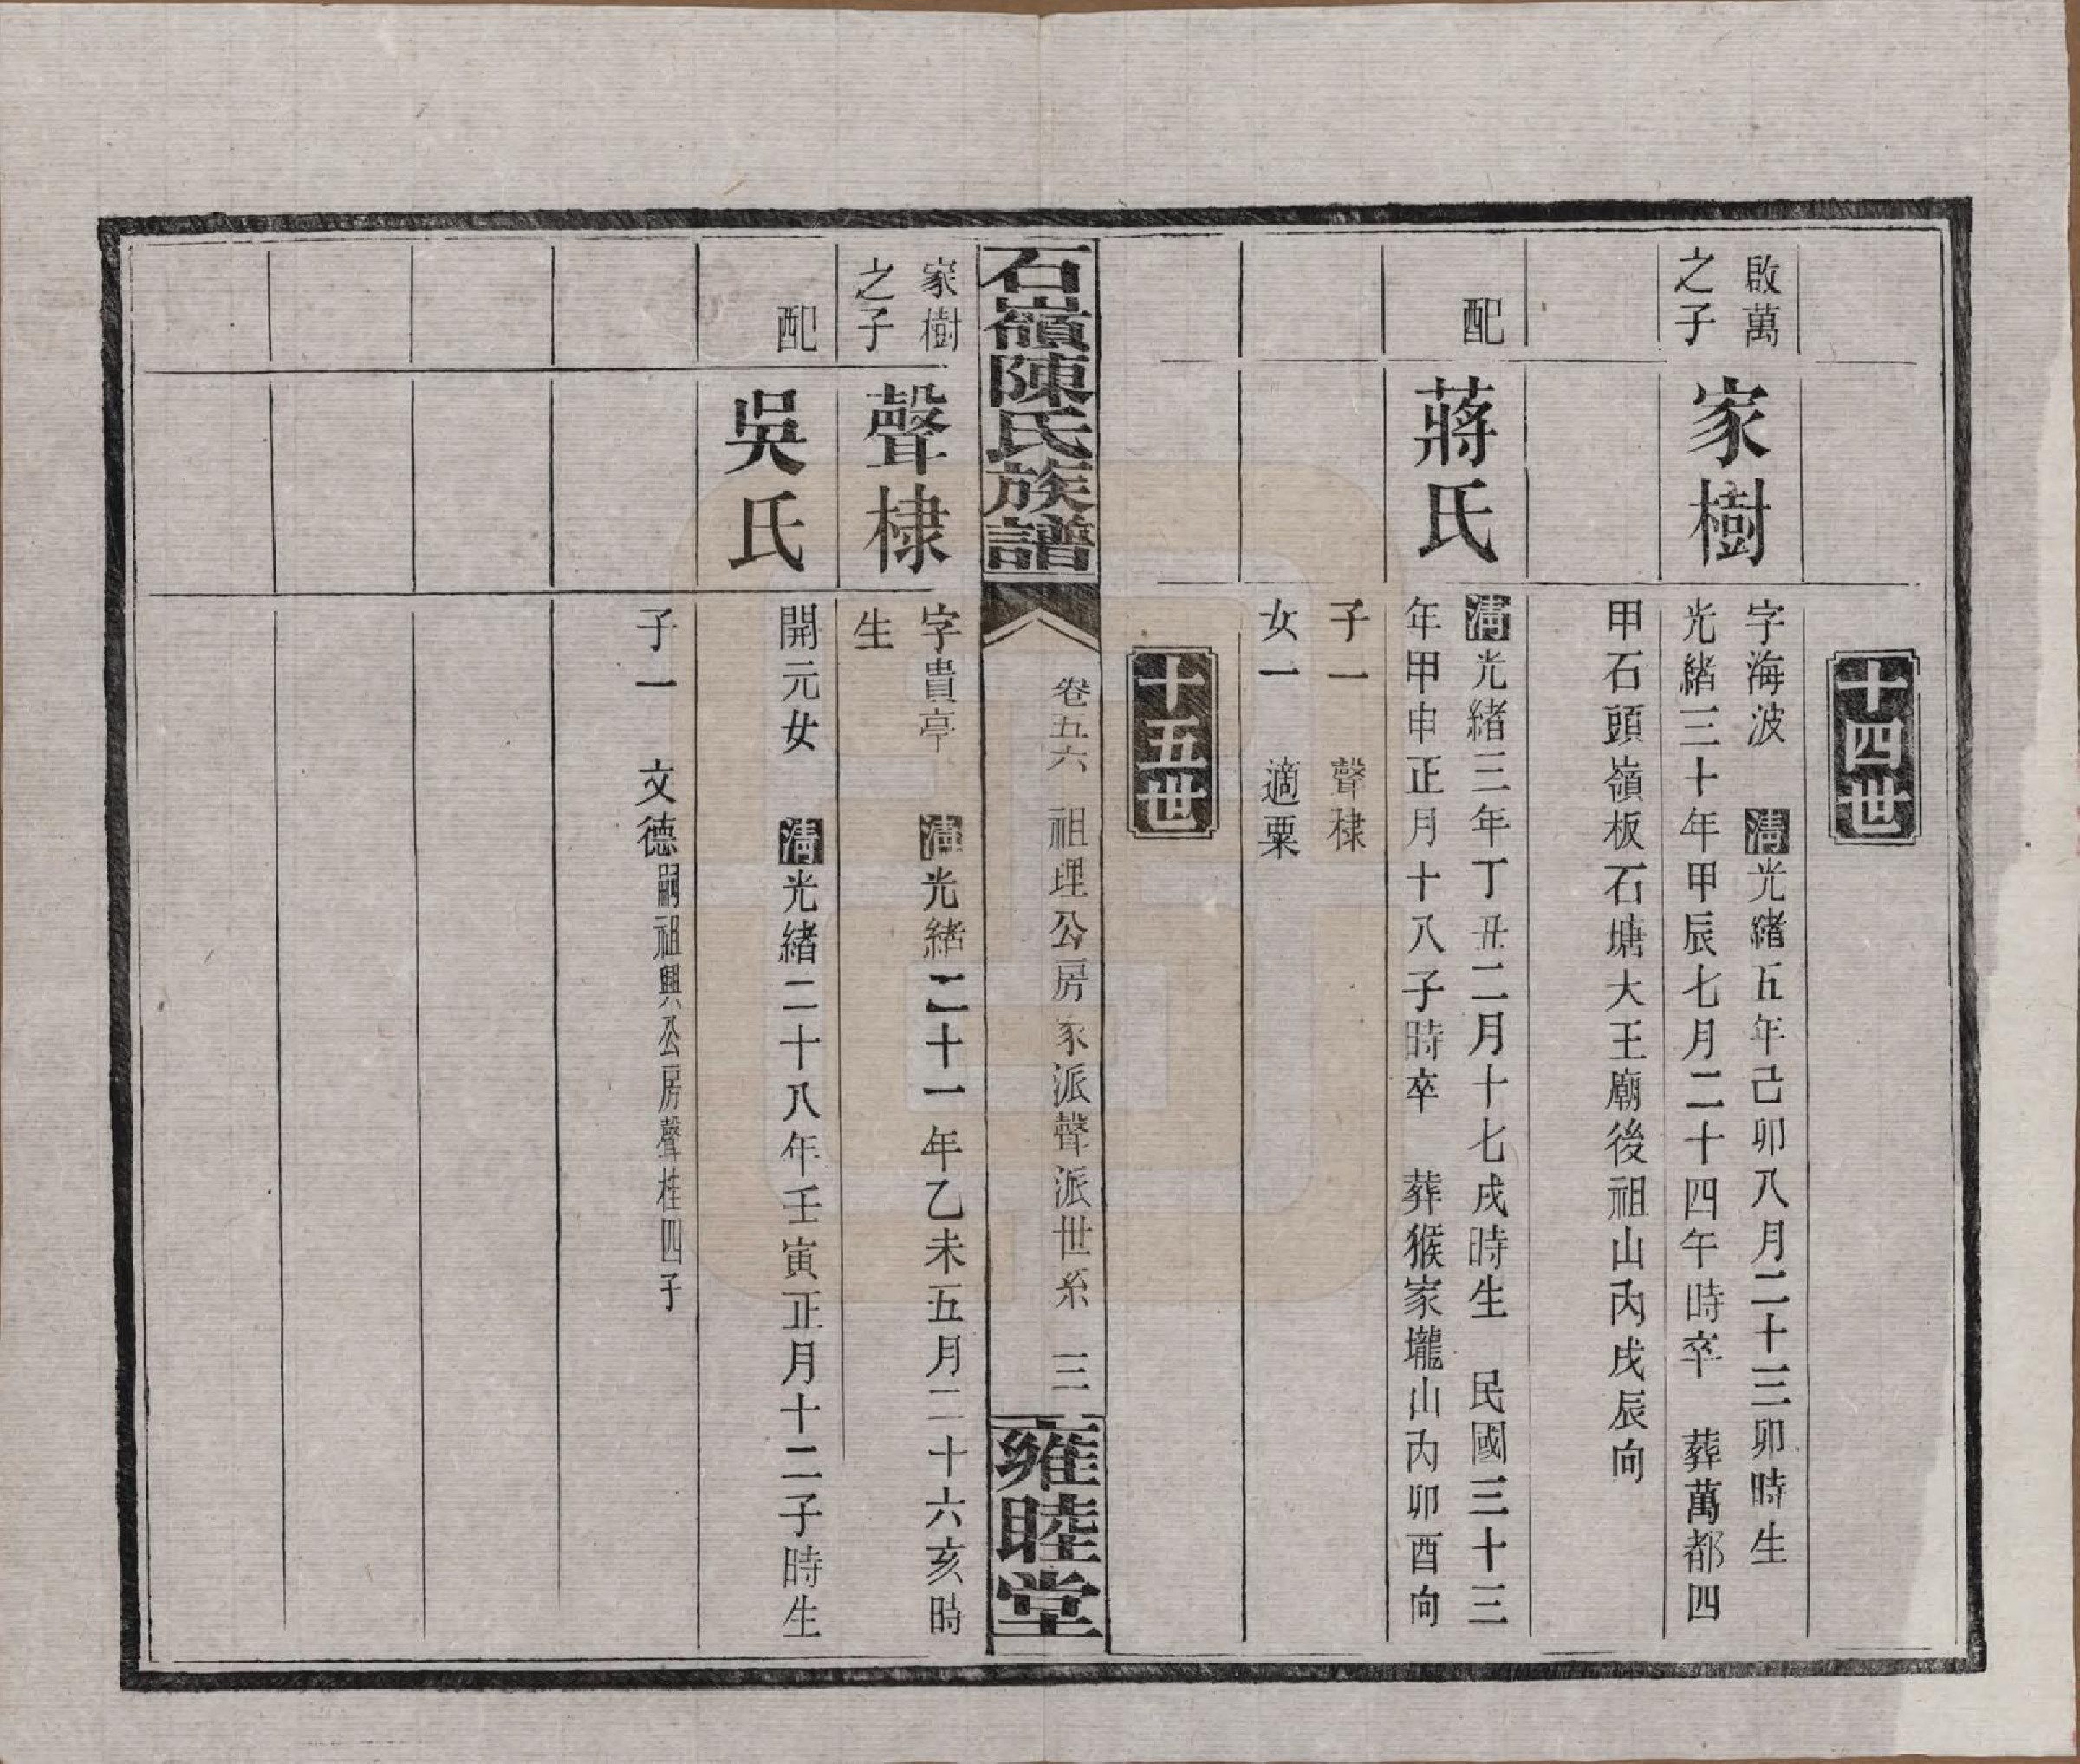 十四世
啟萬
之子
家樹
字海波　清光緒五年己卯八月二十三卯時生
光緒三十年甲辰七月二十四午時卒　葬萬都四
甲石頭嶺板石塘大王廟後祖山內戌辰向
配
蔣氏
清光緒三年丁丑二月十七戌時生　民國三十三
年甲申正月十八子時卒　葬猴家壠山內卯酉向
子一　聲棣
女一　適粟
十五世
石嶺陳氏族譜
卷五六　祖理公房家派聲派世系　三
雍睦堂
家樹
之子
聲棣
字貴亭　清光緒二十一年乙未五月二十六亥時
生
配
吳氏
開元女　清光緒二十八年壬寅正月十二子時生
子一　文德嗣祖興公房聲桂四子